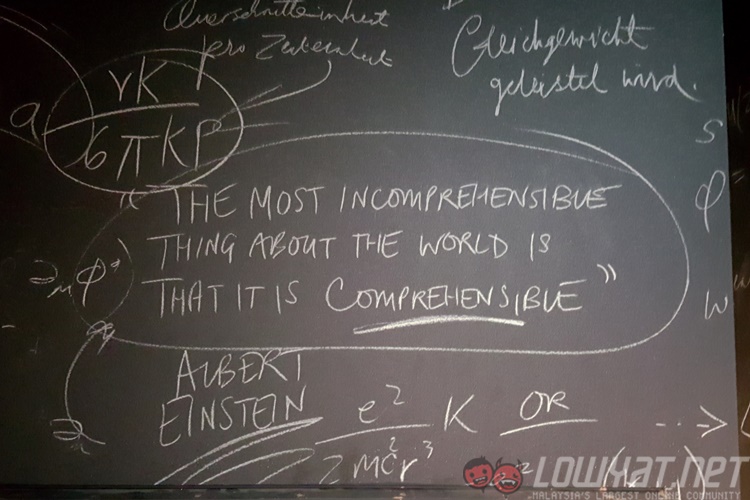 Querschnitteinheit
pro Zeiteinheit
Gleichgewicht
geleistet wird.
a
νK
6πKP
s
φ
w
"THE MOST INCOMPREHENSIBLE
THING ABOUT THE WORLD IS
THAT IT IS COMPREHENSIBLE"
ALBERT
EINSTEIN
e²
K OR
mc²r³
LOWYAT.NET
MALAYSIA'S LARGEST ONLINE COMMUNITY